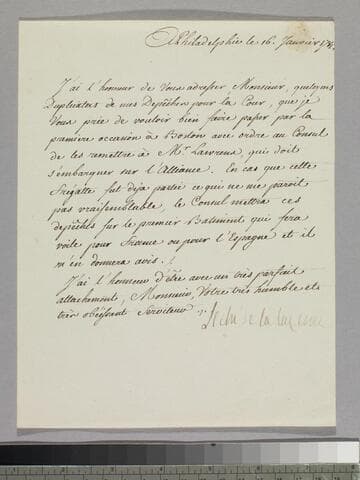 A Philadelphie le 16. Janvier 178
J'ai l'honneur de Vous adresser Monsieur, quelques
Duplicatas de mes Depêches pour la Cour, que je
Vous prie de vouloir bien faire passer par la
premiere occasion à Boston avec ordre au Consul
de les remettre à Mr. Lawrens, qui doit
s'embarquer sur l'Alliance. En cas que cette
fregatte fut deja partie ce qui ne me paroit
pas vraisemblable, le Consul mettra ces
depêches sur le premier Batiment qui fera
voile pour France ou pour l'Espagne et il
m'en donnera avis.
J'ai l'honneur d'être avec un très parfait
attachement, Monsieur, Votre très humble et
très obéissant Serviteur
Le ch. de la luzerne